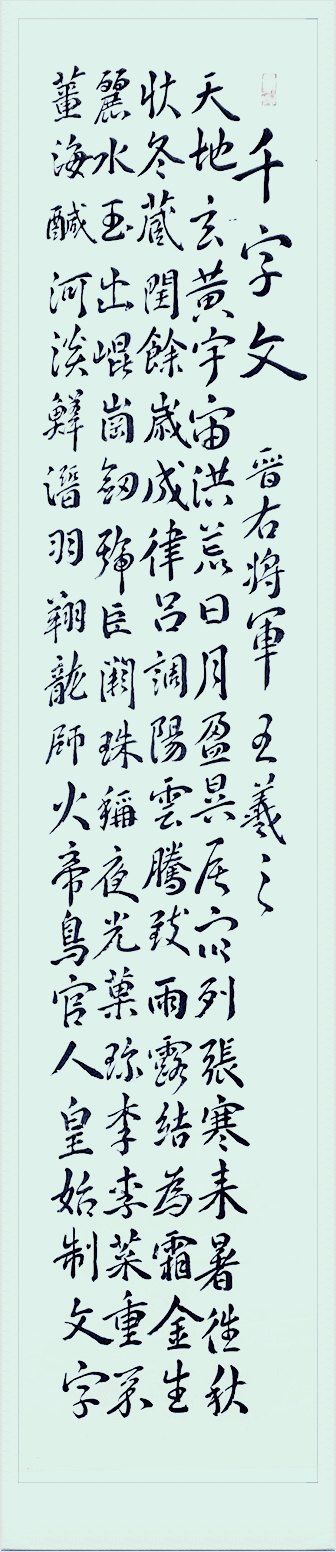 千字文 晉右将軍王羲之
天地玄黃宇宙洪荒日月盈昃辰宿列張寒来暑往秋
收冬藏閏餘歲成律呂調陽雲騰致雨露結為霜金生
麗水玉出崐崗劔號巨闕珠稱夜光菓珎李柰菜重芥
薑海醎河淡鱗潛羽翔龍師火帝鳥官人皇始制文字